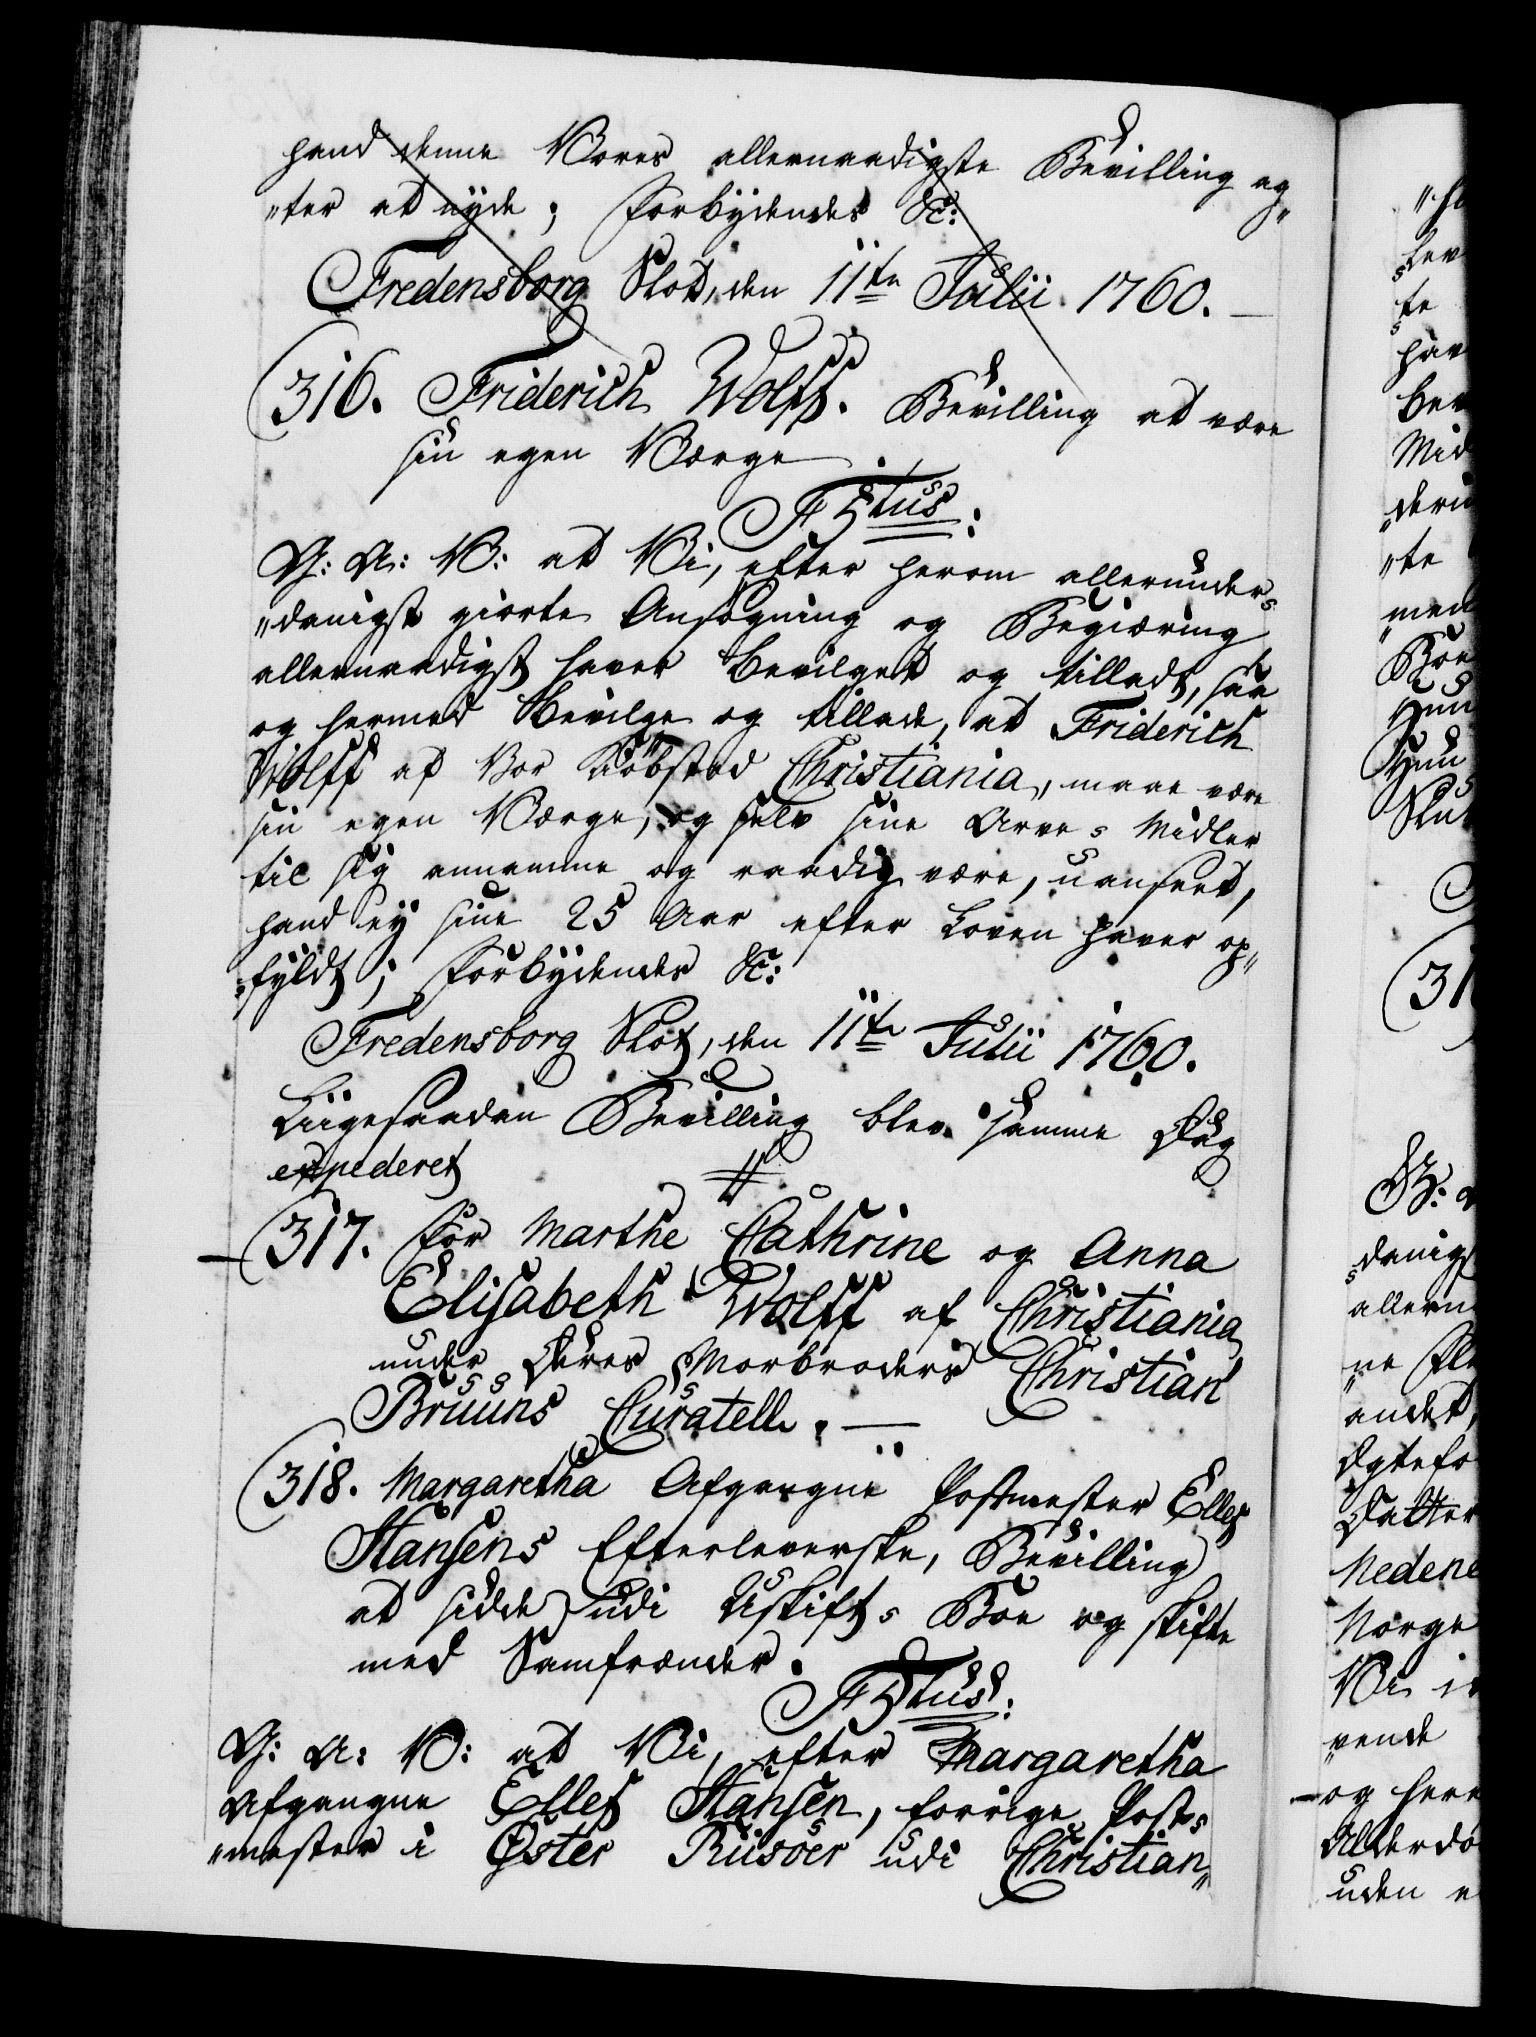 hand denne Vores allernaadigste Bevilling ag
„ter at nyde; Forbydendes &c:
Fredensborg Slot, den 11te Julii 1760.
316. Friderich Wolff. Bevilling at være
sin egen Værge.
F5tus:
G: A: V: at Vi, efter herom allerunder-
„danigst giorte Ansøgning og Begiæring
allernaadigst haver bevilget og tilladt, saa
og hermed bevilge og tillade, at Friderich
Wolff af Vor Kiøbstad Christiania, maae være
sin egen Værge, og selv sine Arve-Midler
til sig annamme og raadig være, uanseet,
hand ey sine 25 Aar efter Loven haver op„
„fyldt; Forbydendes &c:
Fredensborg Slot, den 11te Julii 1760.
Liigesaadan Bevilling blev samme Dag
expederet
317. For Marthe Cathrine og Anna
Elisabeth Wolff af Christiania
under Deres Morbroders Christian
Bruuns Curatell.
318. Margaretha Afgangne Postmester Ellef
Hansens Efterleverske, Bevilling
at sidde udi Uskift-Boe og skifte
med Samfrænder.
F5tus:
G: A: V: at Vi, efter Margaretha
Afgangne Ellef Hansen, forrige Post-
„mester i Øster Riisöer udi Christian„
„te
med
Boe
Hun
31
G:
danigst
allern
ne
andet,
Ægtefo
Datter
Nedene
Norge
Vi
„vende
og her
uden e